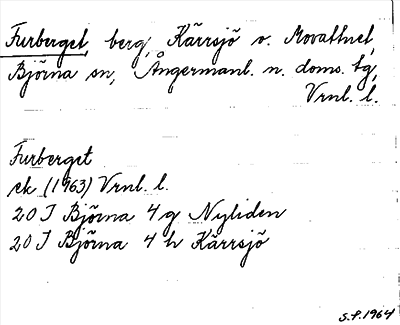 Furberget, berg, Kärrsjö v. Movattnet,
Björna sn, Ångermanl. n. doms. tg,
Vrnl. l.
Furberget
ek (1963) Vrnl. l.
20 J Björna 4 g Nyliden
20 J Björna 4 h Kärrsjö
S.F. 1964